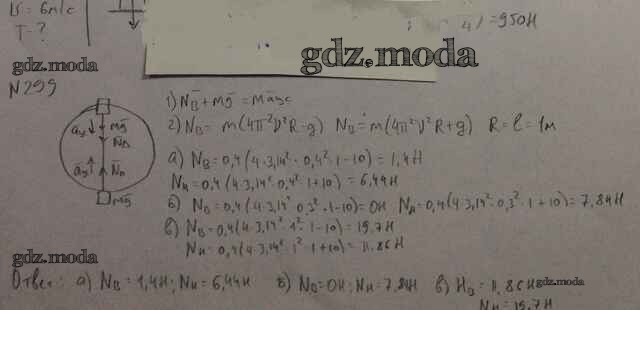 υ = 6м/с
T - ?
4) = 950H
gdz.moda
gdz.moda
N299
1) N̄в + mḡ = māцс
2) Nв = m(4π²ν²R - g) Nн = m(4π²ν²R + g) R = l = 1м
aу mḡ
N̄в
aу N̄н
mḡ
а) Nв = 0,4(4·3,14²·0,4²·1-10) = 1,4H
Nн = 0,4(4·3,14²·0,4²·1+10) = 6,44H
б) Nв = 0,4(4·3,14²·0,3²·1-10) = 0H Nн = 0,4(4·3,14²·0,3²·1+10) = 7,84H
в) Nв = 0,4(4·3,14²·1²·1-10) = 19,7H
Nн = 0,4(4·3,14²·1²·1+10) = 11,86H
gdz.moda
Ответ: а) Nв = 1,4H; Nн = 6,44H б) Nв = 0H; Nн = 7,84H в) Hв = 11,86H
gdz.moda
Nн = 19,7H